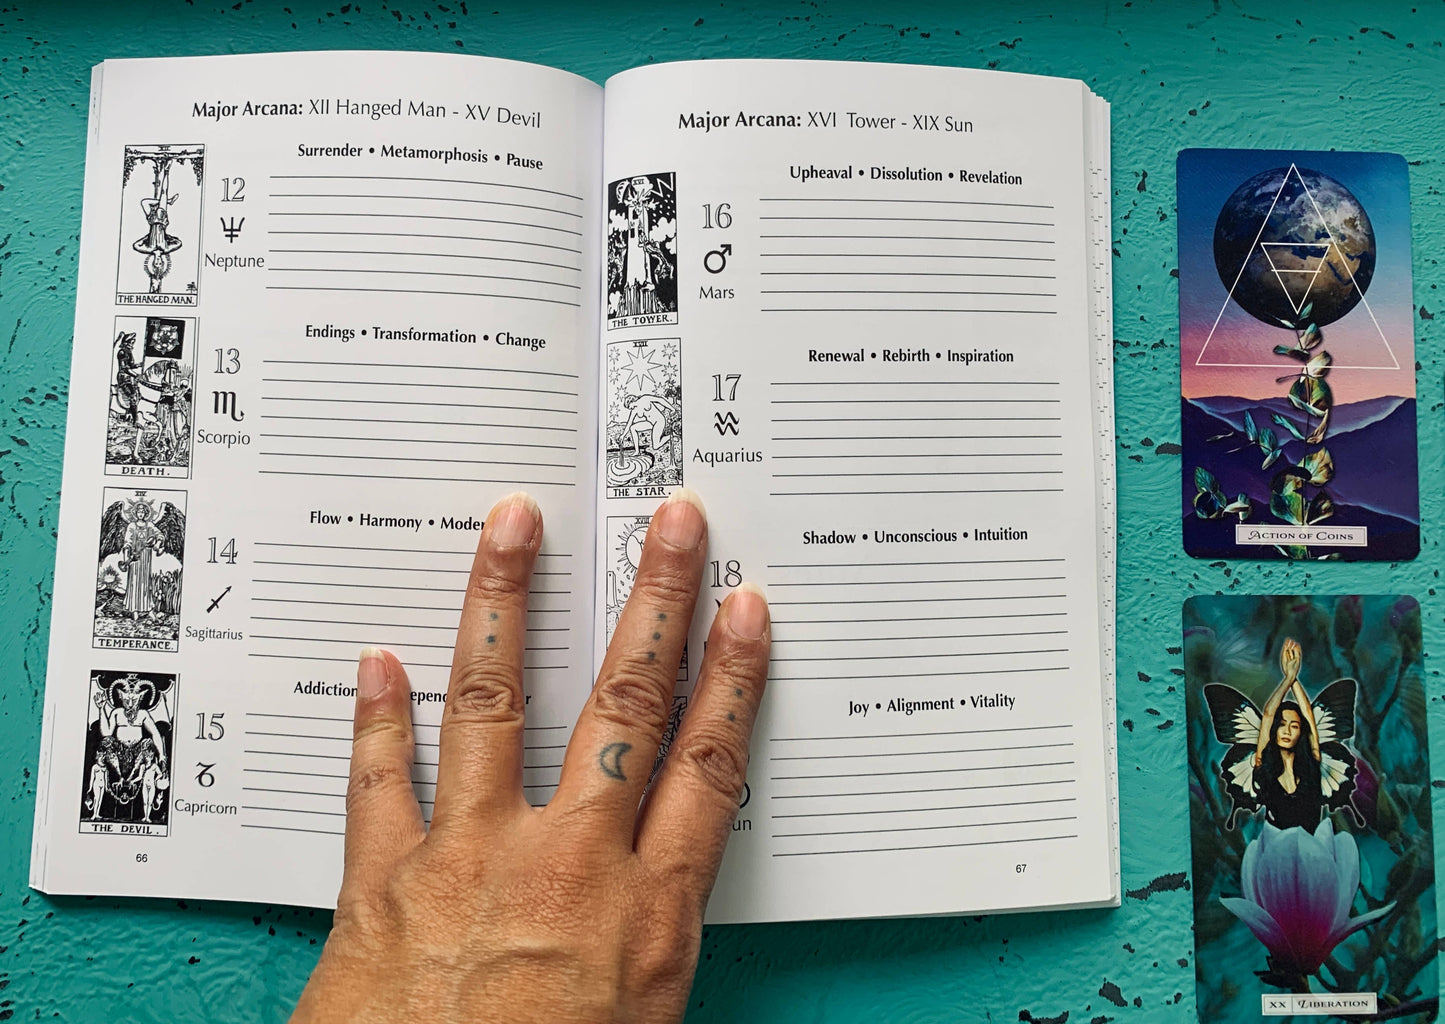 Major Arcana: XII Hanged Man - XV Devil
Surrender • Metamorphosis • Pause
XII
12
Neptune
THE HANGED MAN.
Endings • Transformation • Change
13
Scorpio
DEATH.
Flow • Harmony •
XIV
14
Sagittarius
TEMPERANCE.
15
Capricorn
THE DEVIL.
66
Major Arcana: XVI Tower - XIX Sun
Upheaval • Dissolution • Revelation
XVI
16
Mars
THE TOWER.
Renewal • Rebirth • Inspiration
XVII
17
Aquarius
THE STAR.
Shadow • Unconscious • Intuition
18
Joy • Alignment • Vitality
67
ACTION OF COINS
XX LIBERATION